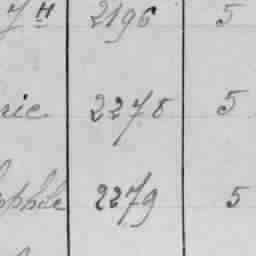 7 H 2196 5
rie 2278 5
ophile 2279 5